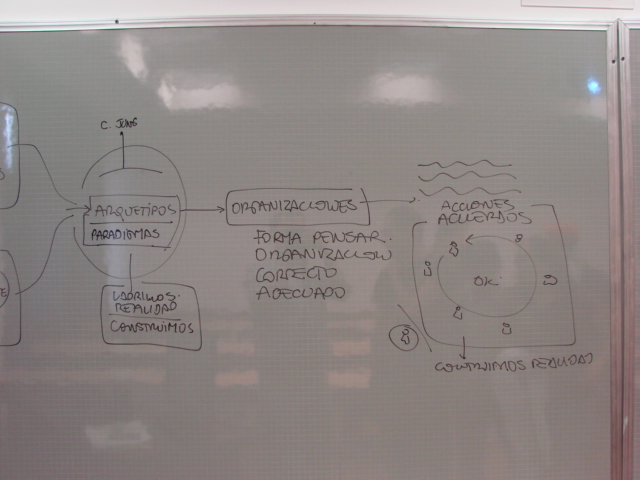 C. JUNG
ARQUETIPOS
PARADIGMAS
LADRILLOS
REALIDAD
CONSTRUIMOS
ORGANIZACIONES
FORMA PENSAR.
ORGANIZACION
CORRECTO
ADECUADO
ACCIONES
ACUERDOS
OK
CONSTRUIMOS REALIDAD